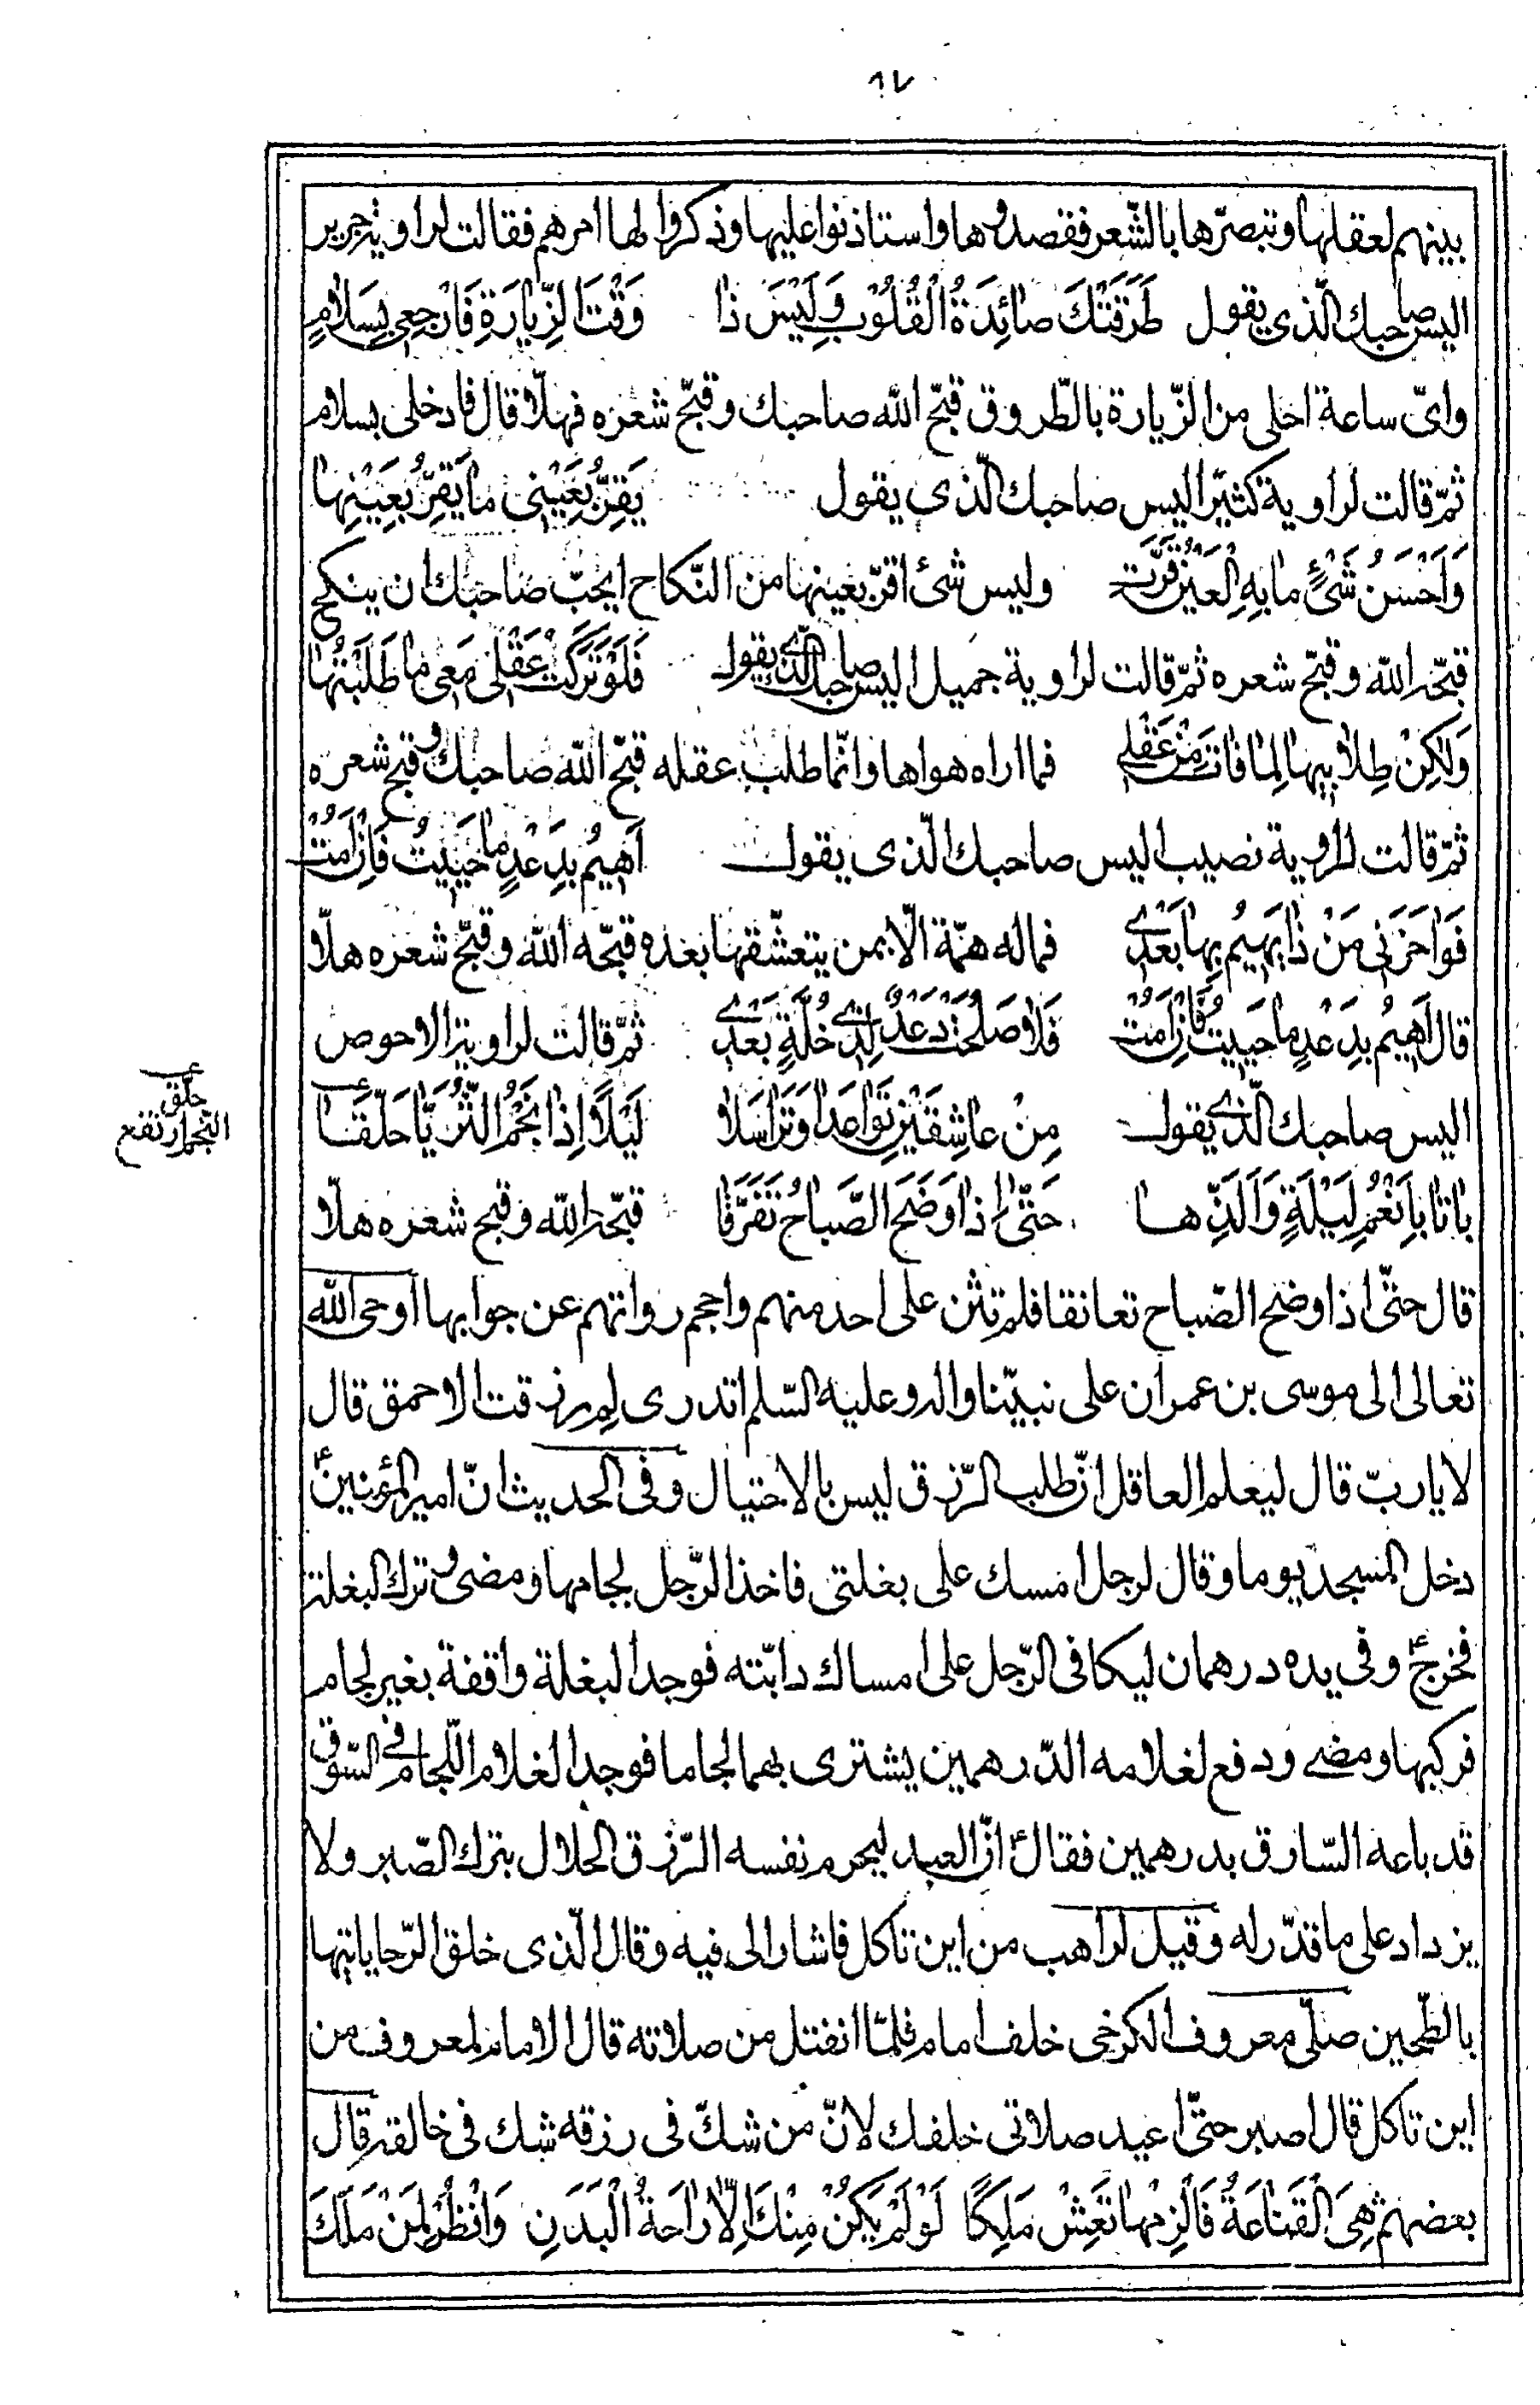 ٨٧
بينهم لعقلها وتبصّرها بالشّعر فقصدوها واستاذنوا عليها وذكروا لها امرهم فقالت لراوية جرير
اليس صاحبك الّذى يقول طَرَقَتْكَ صائِدَةُ الْقُلُوْبِ وَلَيْسَ ذا وَقْتَ الزِّيارَةِ فَارْجِعى بِسَلامٍ
واىّ ساعة احلى من الزّيارة بالطّروق قبّح الله صاحبك وقبّح شعره فهلّا قال فادخلى بسلام
ثمّ قالت لراوية كثيّر اليس صاحبك الّذى يقول يَقِرُّ بِعَيْنى ما يَقِرُّ بِعَيْنِها
وَاَحْسَنُ شَىْءٍ ما بِهِ الْعَيْنُ قَرَّتِ وليس شئ اقرّ بعينها من النّكاح ايحبّ صاحبك ان ينكح
قبّحه الله وقبّح شعره ثمّ قالت لراوية جميل اليس صاحبك الّذى يقول فَلَوْ تَرَكَتْ عَقْلى مَعى ما طَلَبْتُها
وَلكِنْ طِلابيها لِما فاتَ مِنْ عَقْلى فما اراه هواها وانّما طلب عقله قبّح الله صاحبك وقبح شعره
ثمّ قالت لراوية نصيب اليس صاحبك الّذى يقول اَهيمُ بِدَعْدٍ ما حَيَيْتُ فَاِنْ اَمُتْ
فَواحَزَنى مَنْ ذا يَهيمُ بِها بَعْدى فما له همّة الّا بمن يتعشّقها بعده قبّحه الله وقبّح شعره هلّا
قال اَهيمُ بِدَعْدٍ ما حَيَيْتُ فَاِنْ اَمُتْ فَلا صَلُحَتْ دَعْدٌ لِذى خُلَّةٍ بَعْدى ثمّ قالت لراوية الاحوص
اليس صاحبك الّذى يقول مِنْ عاشِقَيْنِ تَواعَدا وَتَراسَلا لَيْلًا اِذا نَجْمُ الثُّرَيّا حَلَّقا
باتا بِاَنْعُمِ لَيْلَةٍ وَاَلَذِّها حَتّى اِذا وَضَحَ الصَّباحُ تَفَرَّقا قبّحه الله وقبح شعره هلّا
قال حتّى اذا وضح الصّباح تعانقا فلم تثن على احد منهم واحجم رواتهم عن جوابها اوحى الله
تعالى الى موسى بن عمران على نبيّنا واله وعليه السّلم اتدرى لم رزقت الاحمق قال
لا يا ربّ قال ليعلم العاقل انّ طلب الرّزق ليس بالاحتيال وفى الحديث انّ امير المؤمنين ع
دخل المسجد يوما وقال لرجل امسك على بغلتى فاخذ الرّجل لجامها ومضى وترك البغلة
فخرج ع وفى يده درهمان ليكافى الرّجل على امساك دابّته فوجد البغلة واقفة بغير لجام
فركبها ومضى ودفع لغلامه الدّرهمين يشترى بهما لجاما فوجد الغلام اللّجام فى السّوق
قد باعه السّارق بدرهمين فقال ع انّ العبد ليحرم نفسه الرّزق الحلال بترك الصّبر ولا
يزداد على ما قدّر له وقيل لراهب من اين تاكل فاشار الى فيه وقال الّذى خلق الرّحا ياتيها
بالطّحين صلّى معروف الكرخى خلف امام فلمّا انفتل من صلاته قال الامام لمعروف من
اين تاكل قال اصبر حتّى اعيد صلاتى خلفك لانّ من شكّ فى رزقه شك فى خالقه قال
بعضهم هِىَ الْقَناعَةُ فَالْزِمْها تَعِشْ مَلِكًا لَوْ لَمْ يَكُنْ مِنْكَ اِلّا راحَةُ الْبَدَنِ وَانْظُرْ لِمَنْ مَلَكَ
حلّق
النّجم ارتفع